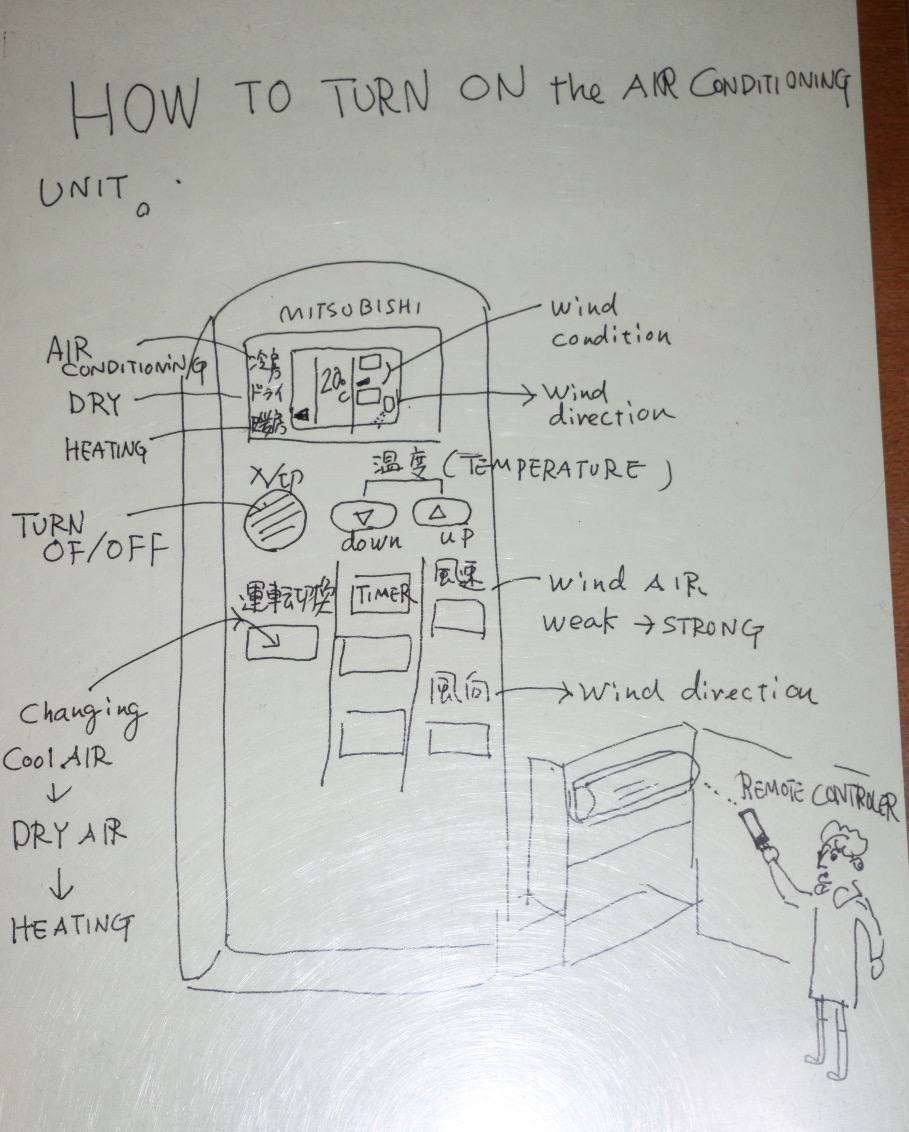 HOW TO TURN ON the AIR CONDITIONING
UNIT。
MITSUBISHI
AIR
CONDITIONING
DRY
HEATING
冷房
ドライ
暖房
20°C
wind
condition
Wind
direction
温度 (TEMPERATURE)
TURN
OF/OFF
down
up
運転切換
TIMER
風速
Wind AIR
weak → STRONG
風向
Wind direction
Changing
Cool AIR
↓
DRY AIR
↓
HEATING
REMOTE CONTROLER